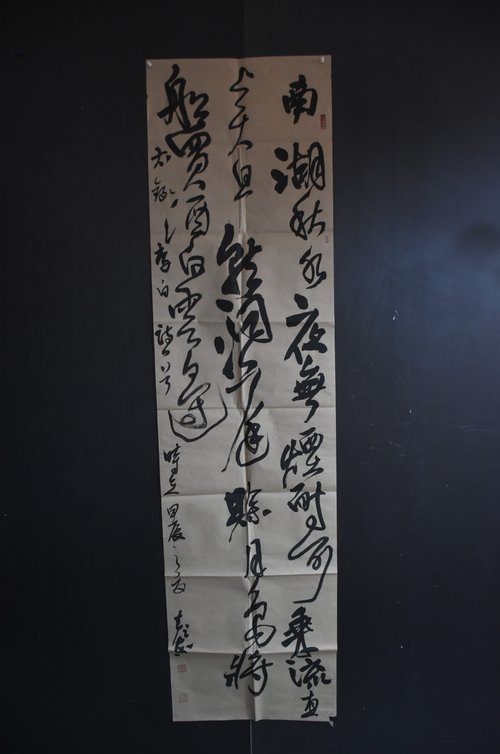 南湖秋水夜無煙耐可乘流直
上天且就洞庭賒月色將
船買酒白雲邊
右錄李白詩一首時在甲辰之